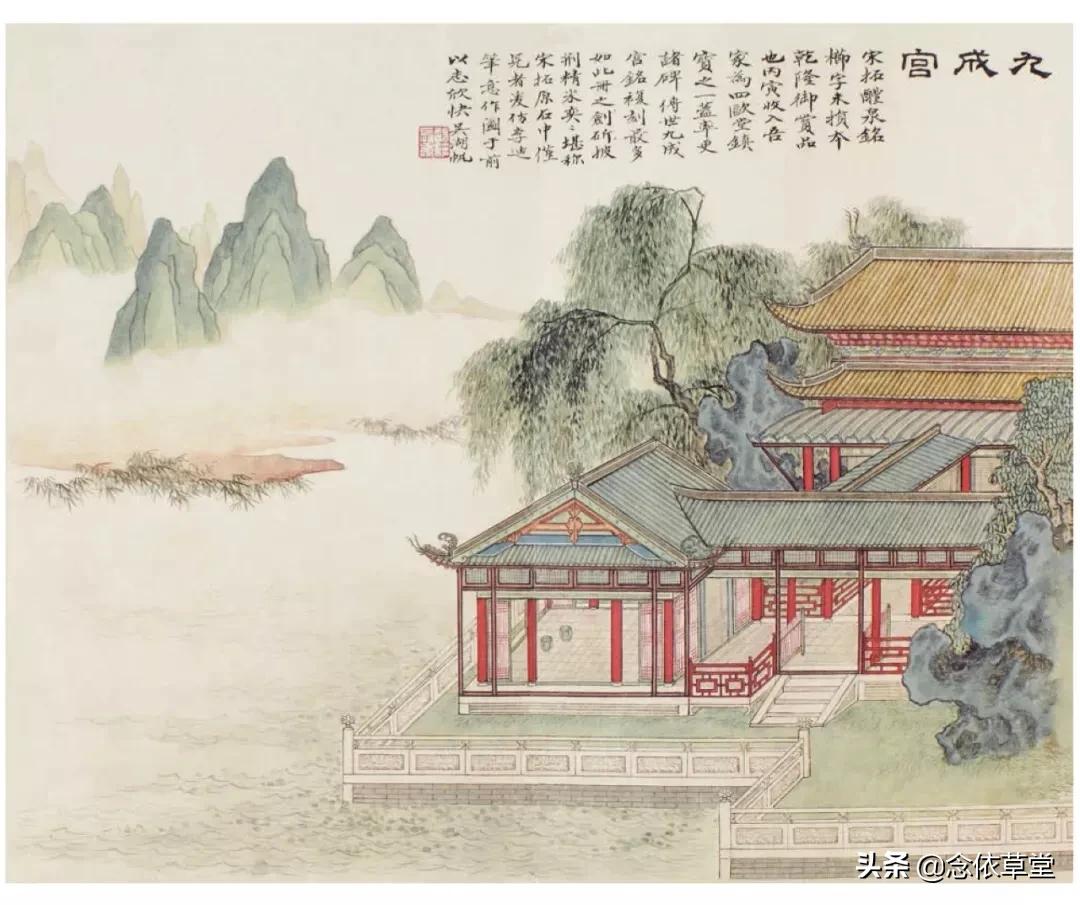 九成宮
宋拓醴泉銘
櫛字未損本
乾隆御賞品
也丙寅收入吾
家為四歐堂鎮
寶之一蓋率更
諸碑傳世九成
宮銘複刻最多
如此冊之劍斫披
荆精采奕〻堪称
宋拓原石中僅
見者爰仿李迪
筆意作圖于前
以志欣快吳湖帆
头条 @念依草堂